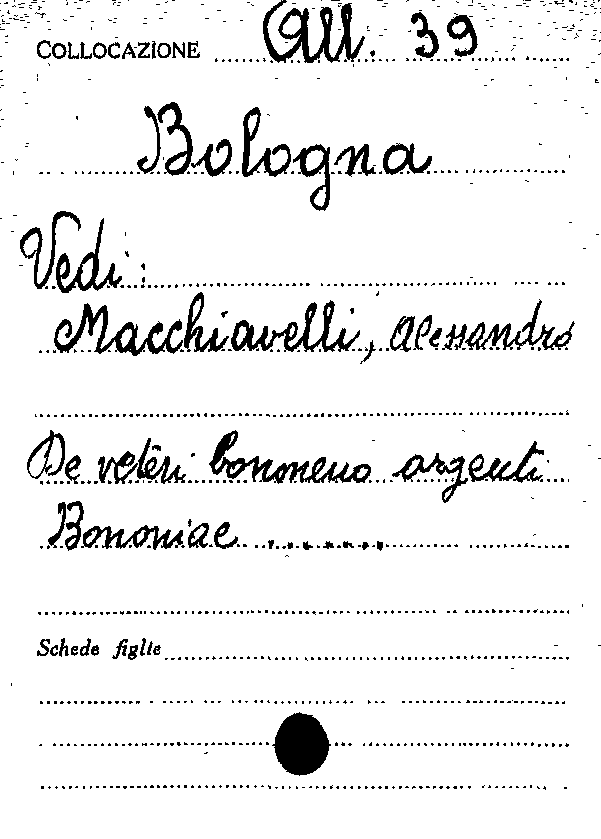 COLLOCAZIONE All. 39
Bologna
Vedi:
Macchiavelli, Alessandro
De veteri bonmeno argenti
Bononiae ........
Schede figlie